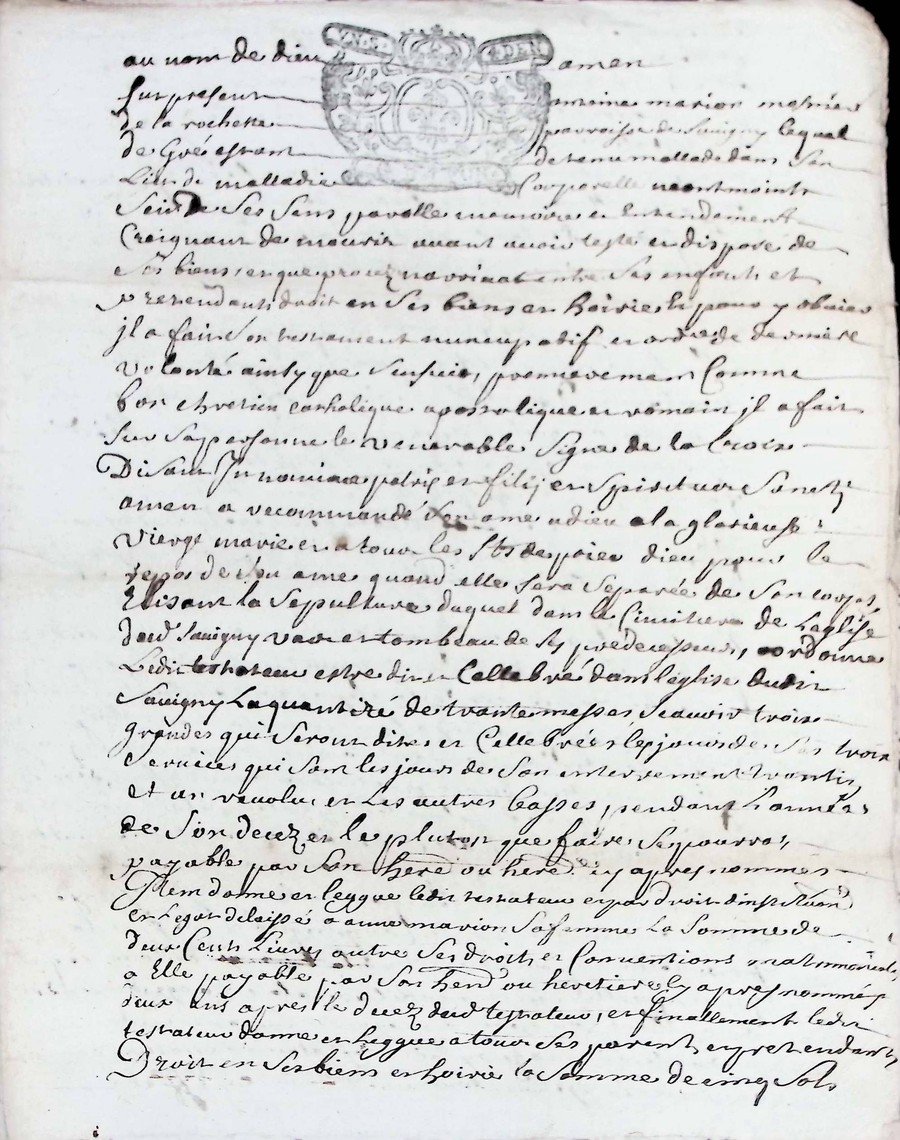 VN S. 4 DEN
au nom de dieu amen
fut present antoine marion mesnier
de la rochette parroisse de Savigny lequel
de Gré estant detenu mallade dans Son
Lit de malladie Corporelle neantmoints
Sein De Ses Sens parolle memoire et Entendement
Craignant de mourir avant avoir testé et disposé de
Ses biens, et que procez entre Ses enfants et
pretendants droit en Ses biens et hoirie Et pour y obvier
jl a fait Son testament nuncupatif et ordre de derniere
volonté ainsy que Sensuit, premierement Comme
bon chretien catholique apostolique et romain jl a fait
Sur Sa personne le venerable Signe de la Croix
Disant In nomine patris et filij et Spiritus Sancti
amen a recommandé Son ame a dieu a la glorieuse
vierge marie et a tour les Sts de prier dieu pour le
repos de Son ame quand elle Sera Separée de Son corps,
Elisant la Sepulture duquel dans le Cimitiere de Leglise
dud Savigny vas et tombeau de Ses predecesseurs, ordonne
Ledit testateur estre dit et Cellebré dans leglise dudit
Savigny La quantité de trante messes Scavoir trois
grandes qui Seront dites et Cellebrées les jours de Ses trois
Services qui Sont les jours de Son enterrement trantin
et an revolu, et Les autres basses, pendant Lannée
de Son decez et le plutost que faire Se pourra,
payable par Son herer ou hered cy apres nommés
Item donne et leggue ledit testateur et par droit dinstitution
et Legat delaissé a anne marion Sa femme La Somme de
deux Cents Livres outre Ses droits et Conventions matrimoniales
a Elle payable par Son herer ou heretiere Cy apres nommés
deux ans apres le decez dud testateur, et finallement ledit
testateur donne et leggue a tour Ses parents et pretendants
Droit en Ses biens et hoirie la Somme de cinq Sols